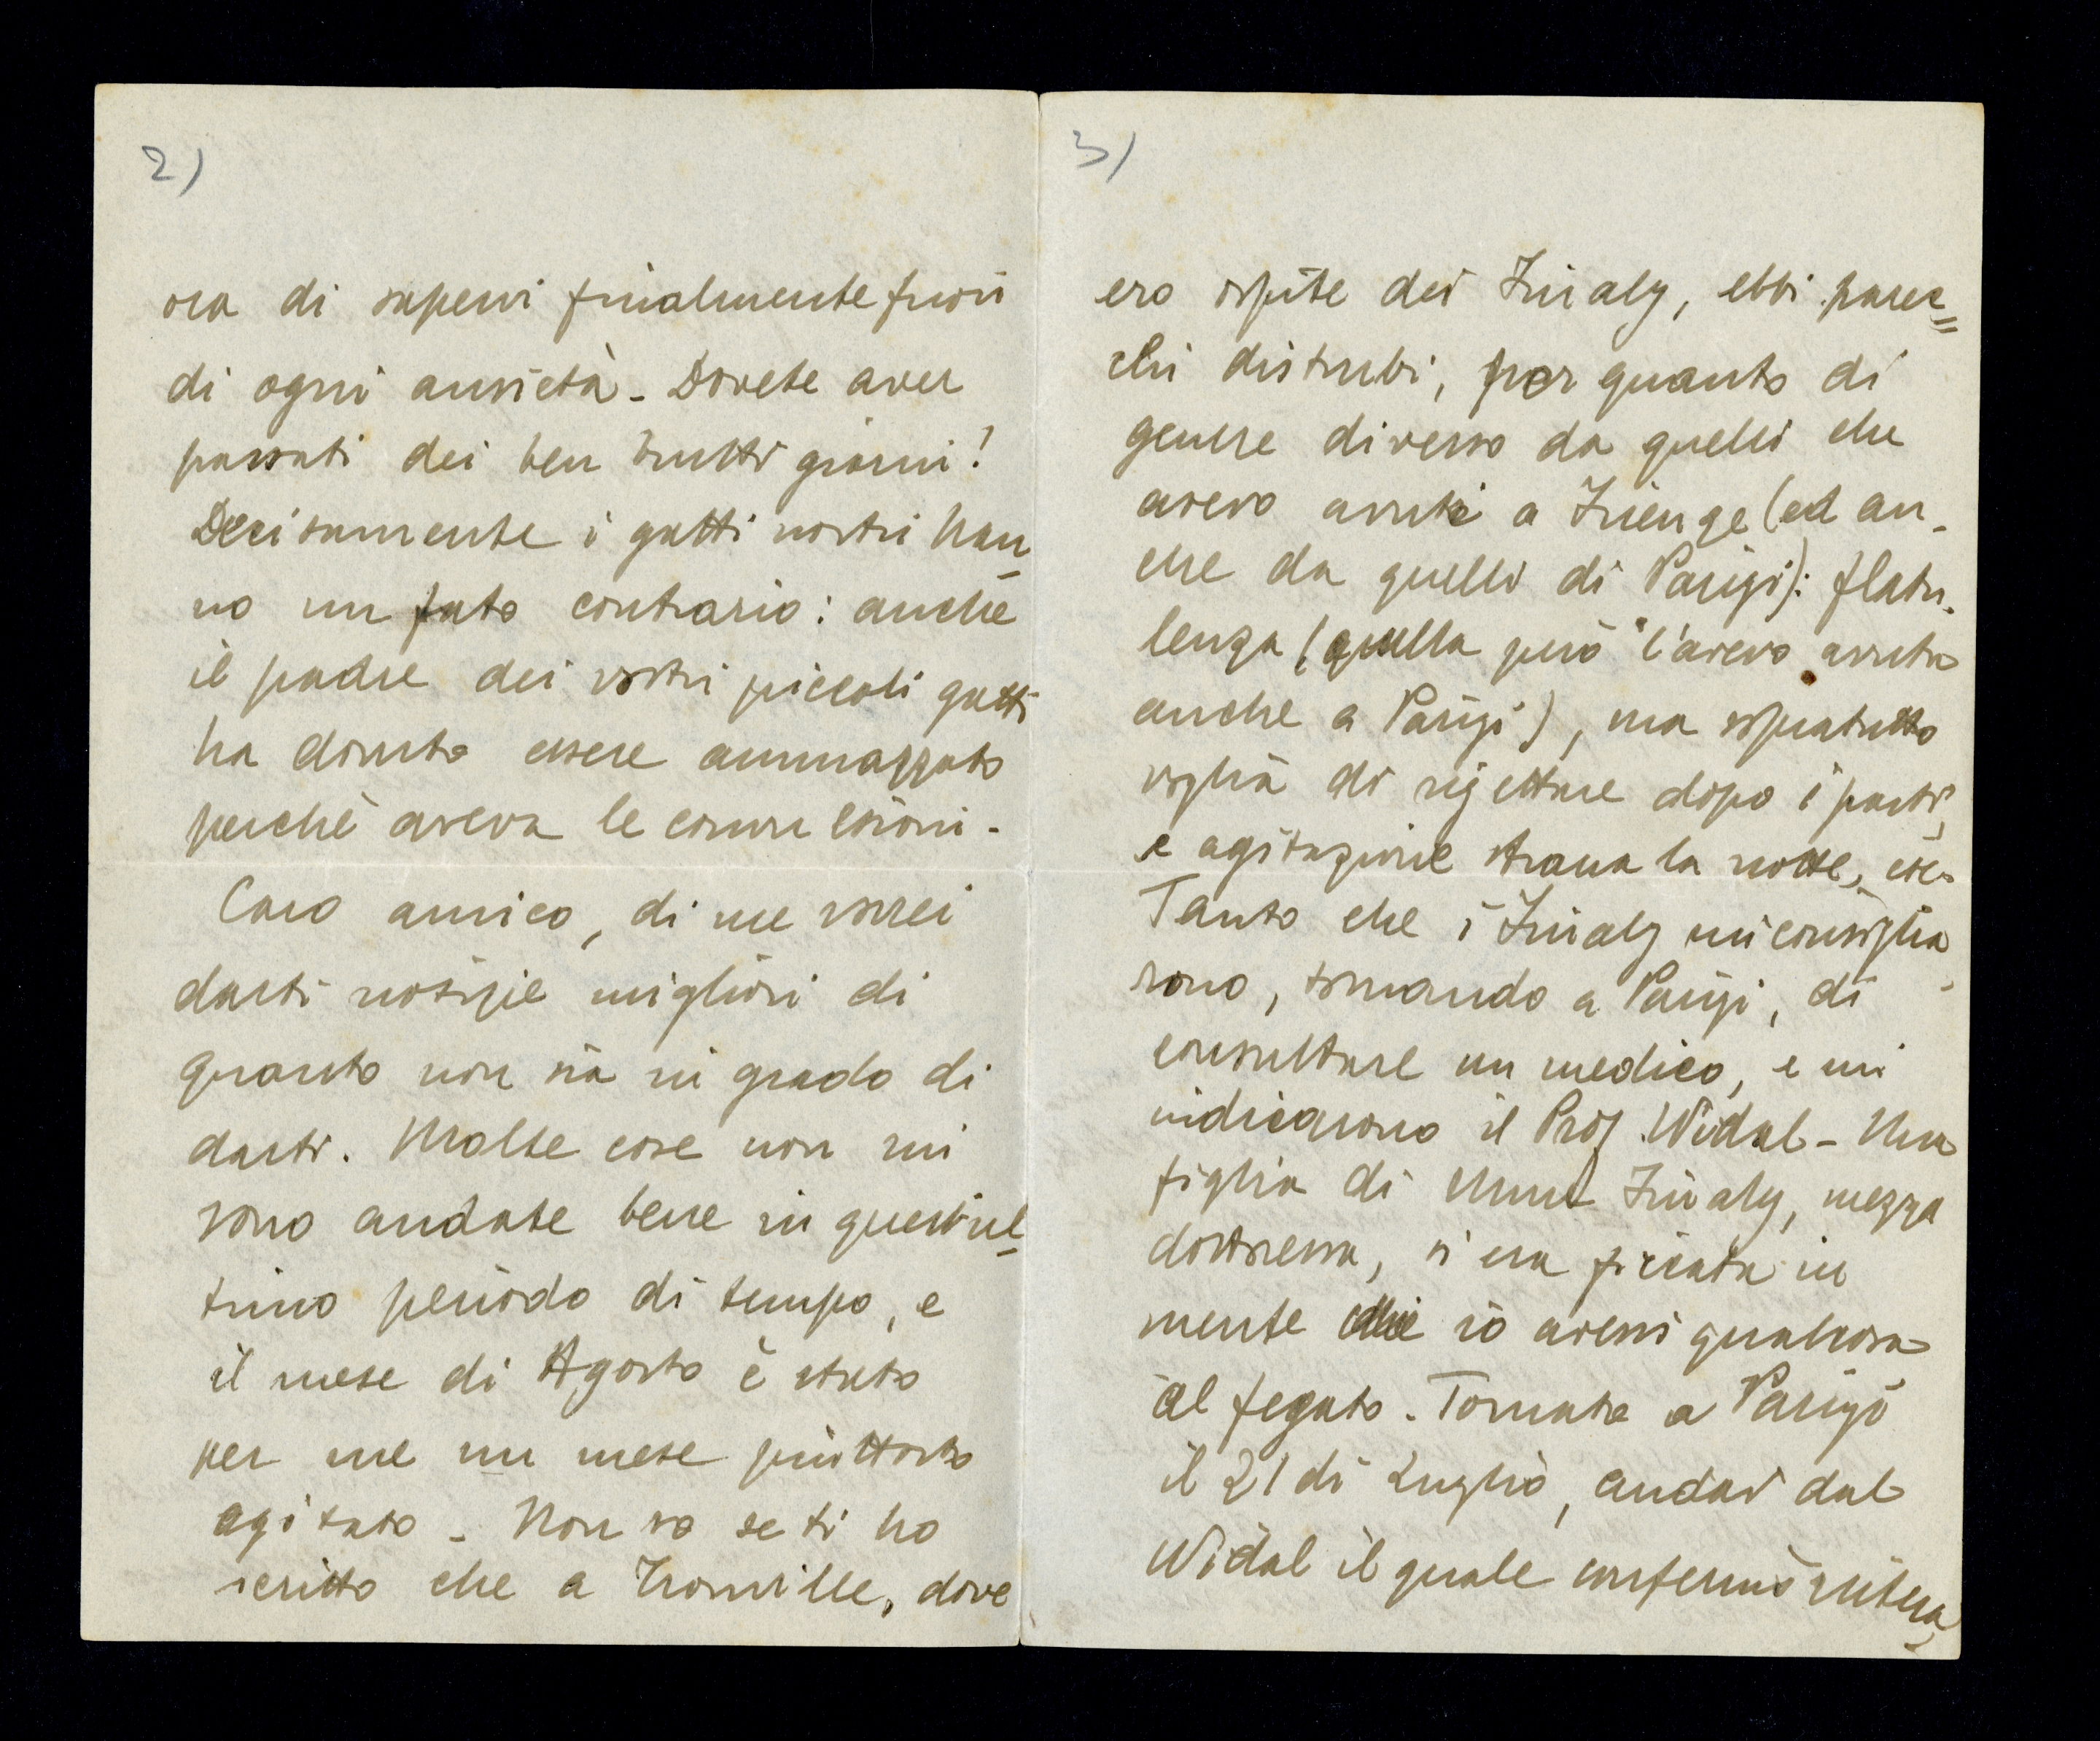 2)
ora di sapervi finalmente fuori
di ogni ansietà - Dovete aver
passati dei ben brutti giorni!
Decisamente i gatti nostri han-
no un fato contrario: anche
il padre dei vostri piccoli gatti
ha dovuto essere ammazzato
perchè aveva le convulsioni -
Caro amico, di me vorrei
darti notizie migliori di
quanto non sia in grado di
darti. Molte cose non mi
sono andate bene in quest'ul-
timo periodo di tempo, e
il mese di Agosto è stato
per me un mese piuttosto
agitato - Non so se ti ho
scritto che a Trouville, dove
3)
ero ospite dei Finaly, ebbi parec=
chi disturbi, per quanto di
genere diverso da quelli che
avevo avuti a Firenze (ed an-
che da quelli di Parigi): flatu-
lenza (quella però l'avevo avuta
anche a Parigi), ma sopratutto
voglia di rigettare dopo i pasti,
e agitazione strana la notte, etc.
Tanto che i Finaly mi consiglia-
rono, tornando a Parigi, di
consultare un medico, e mi
indicarono il Prof. Widal - Una
figlia di Mme Finaly, mezza
dottoressa, si era ficcata in
mente che io avessi qualcosa
al fegato. Tornato a Parigi
il 21 di Luglio, andai dal
Widal il quale confermò ritera-